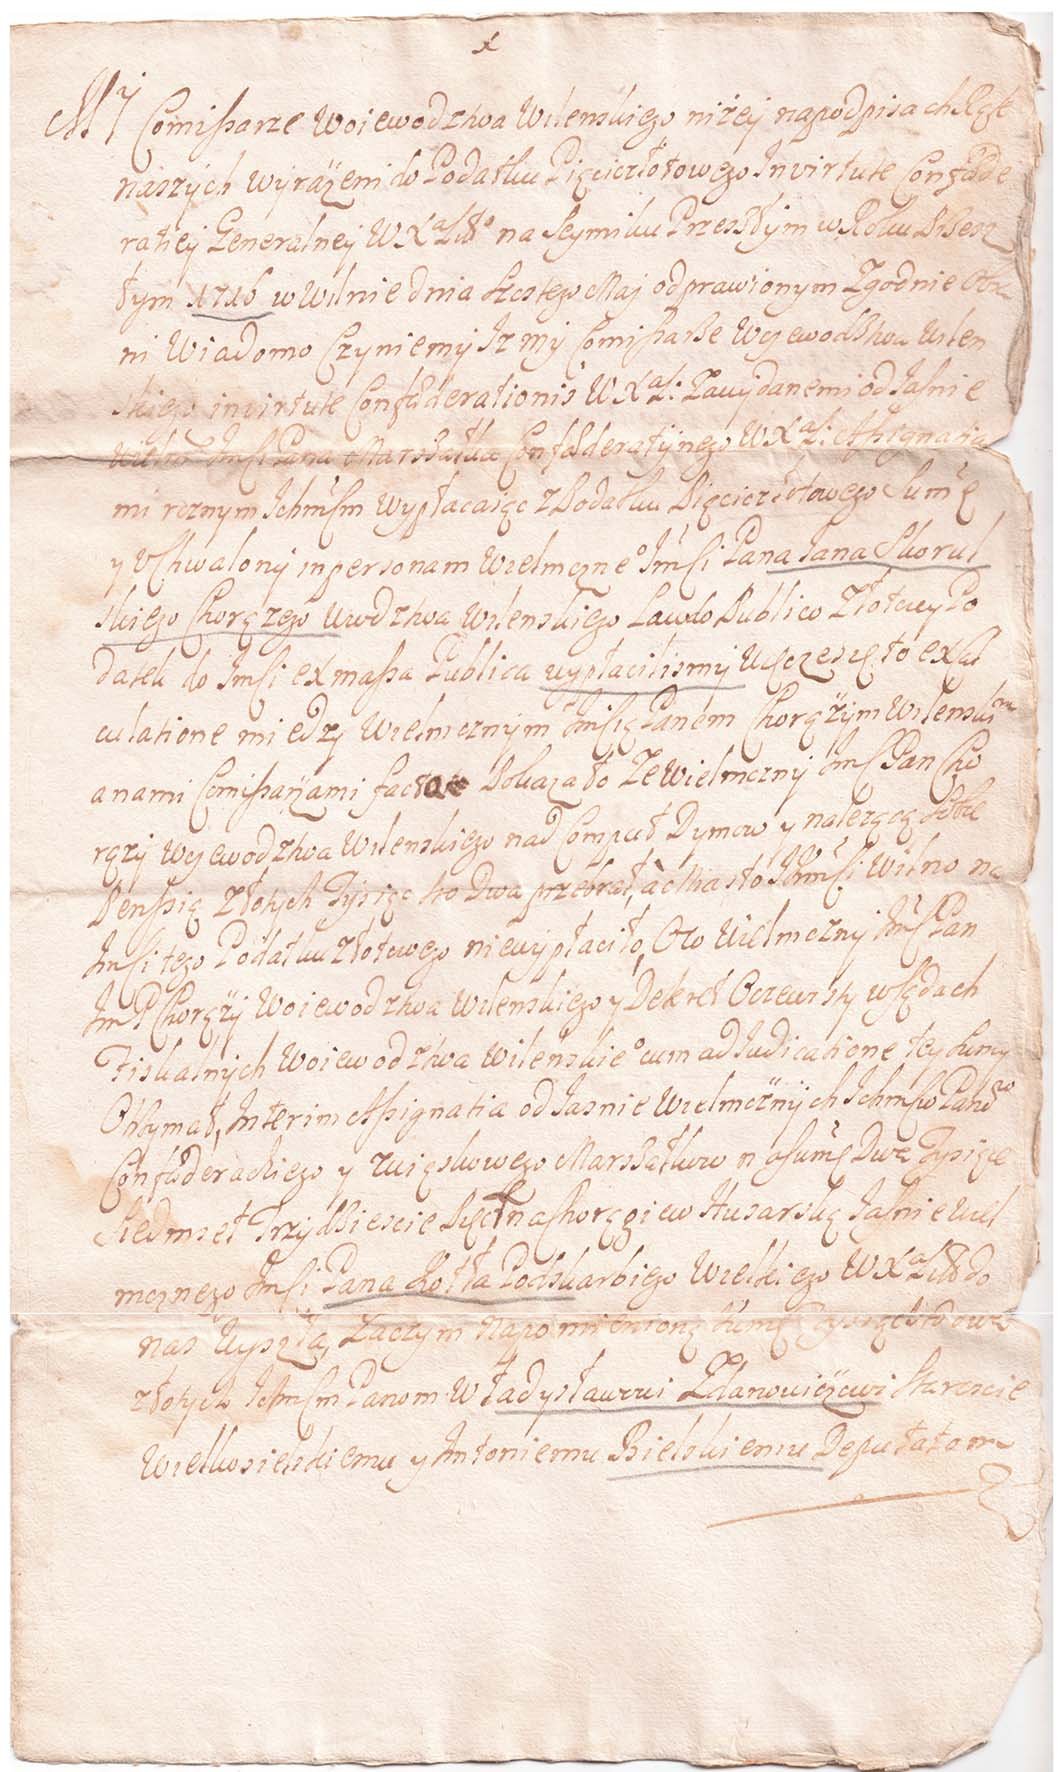 x
My Comissarze Woiewodztwa Wilenskiego niżey na podpisach Rąk
naszych wyrażeni do Podatku Pięciezłotowego Invirtute Confæde
ratiey Generalney W X a Litt° na Seymiku Przeszłym w Roku
tym 1716 w Wilnie dnia szostego Maj odprawionym Zgodnie Obra
ni Wiadomo Czyniemy Iz my Comissarze Wojewodstwa Wilen
skiego invirtute Confæderationis W X a L: Zawydanemi od Jasnie
Imsci Pana Marszałka Confæderatÿnego W X a L: Assignatia
mi roznym Ichmsm wypłacaiąc z Podatku Pięciezłotowego Sumę
y Uchwalony in personam Wielmozne° Imsci Pana Jana Skorul
skiego Chorązego Wwdztwa Wilenskiego Laudo Publico Złotowy Po
datek do Imsci ex massa Publica wypłacilismy to exkal
culatione miedzy Wielmoznym Imscią Panem Chorązym Wilenskim
a nami Comissarzami Pokazało Ze Wielmozny Imsc Pan Cho
rązy Wojewodztwa Wilenskiego nad Comput Dymow y nalezącą sobie
Pensyią Złotych Tysiąc sto Dwa przebrał, a Miasto Ichmsci Wilno na
Imsci tego Podatku złotowego niewypłaciło, Oco Wielmozny Imsc Pan
Im P Chorązy Woiewodztwa Wilenskiego y Dekret Oczewisty w sądach
Fiskalnych Woiewodztwa Wilenskie° cum adiudicatione tey sumy
Otrzymał, Interim Assignatia od Jasnie Wielmoznÿch Ichmsciw Panow
Confæderackiego y związkowego Marszałkow na sumę Dwa Tysiące
siedmset Trzydziescie Pięć na Chorągiew Husarską Jasnie Wiel
moznego Imsci Pana Kotła Podskarbiego Wielkiego W X a Litt do
nas wyszła, Zaczym napomienioną sumę Tysiąc sto dwa
złotych Ichmsm Panom Władysławowi Zdanowiczowi Staroscie
Wielkosielskiemu y Antoniemu Bielskiemu Deputatom